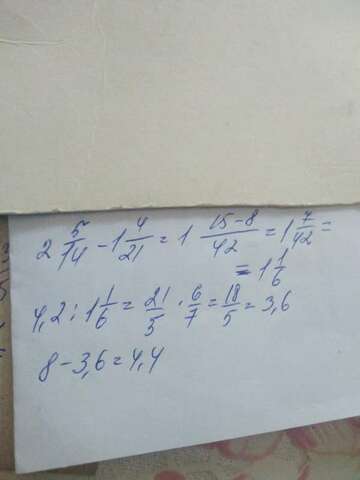 2 5/14 - 1 4/21 = 1 15-8/42 = 1 7/42 =
= 1 1/6
4,2 : 1 1/6 = 21/5 · 6/7 = 18/5 = 3,6
8 - 3,6 = 4,4